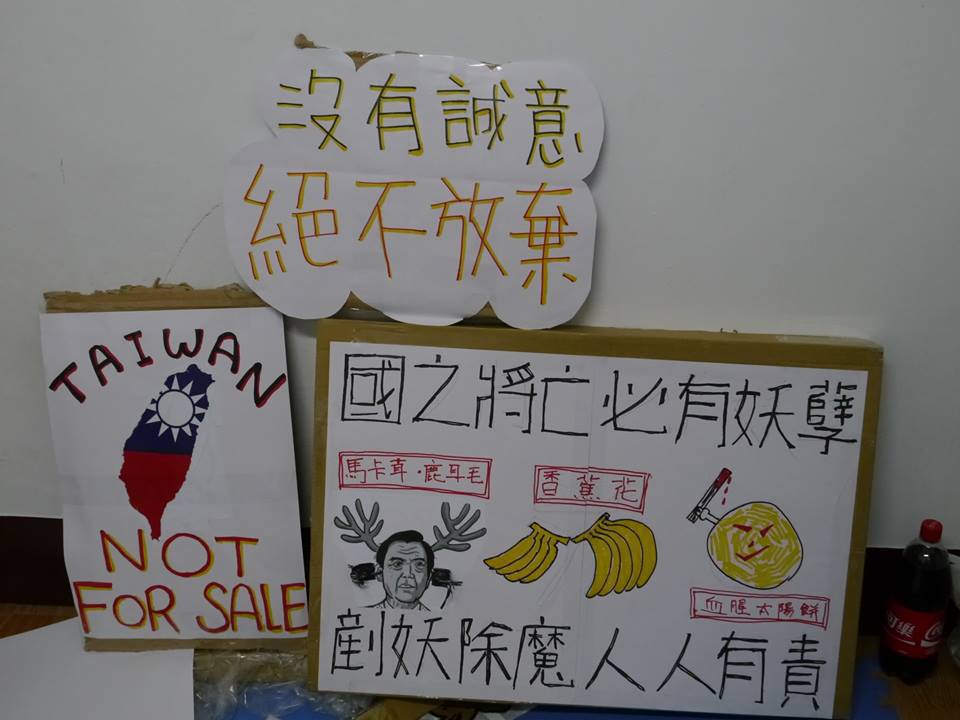 沒有誠意
絕不放棄
TAIWAN
NOT
FOR SALE
國之將亡必有妖孽
馬卡茸·鹿耳毛
香蕉花
血腥太陽餅
剷妖除魔人人有責
可樂